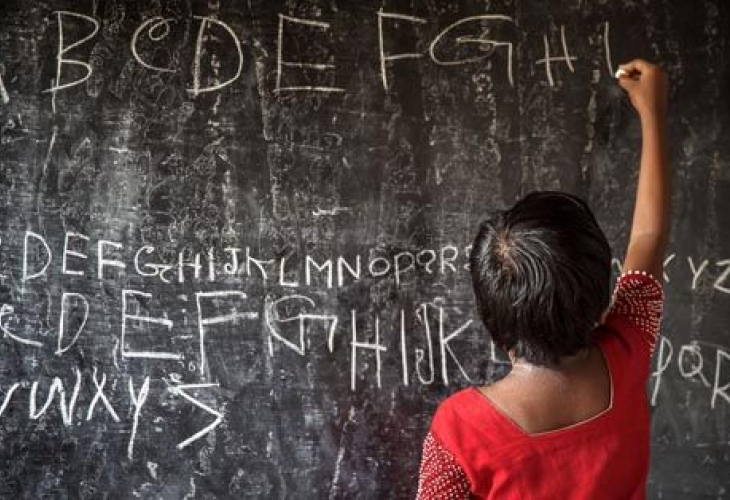 B C D E F G H I
D E F G H I J K L M N O P Q R X Y Z
C D E F G H I J K P Q R
V W X Y Z